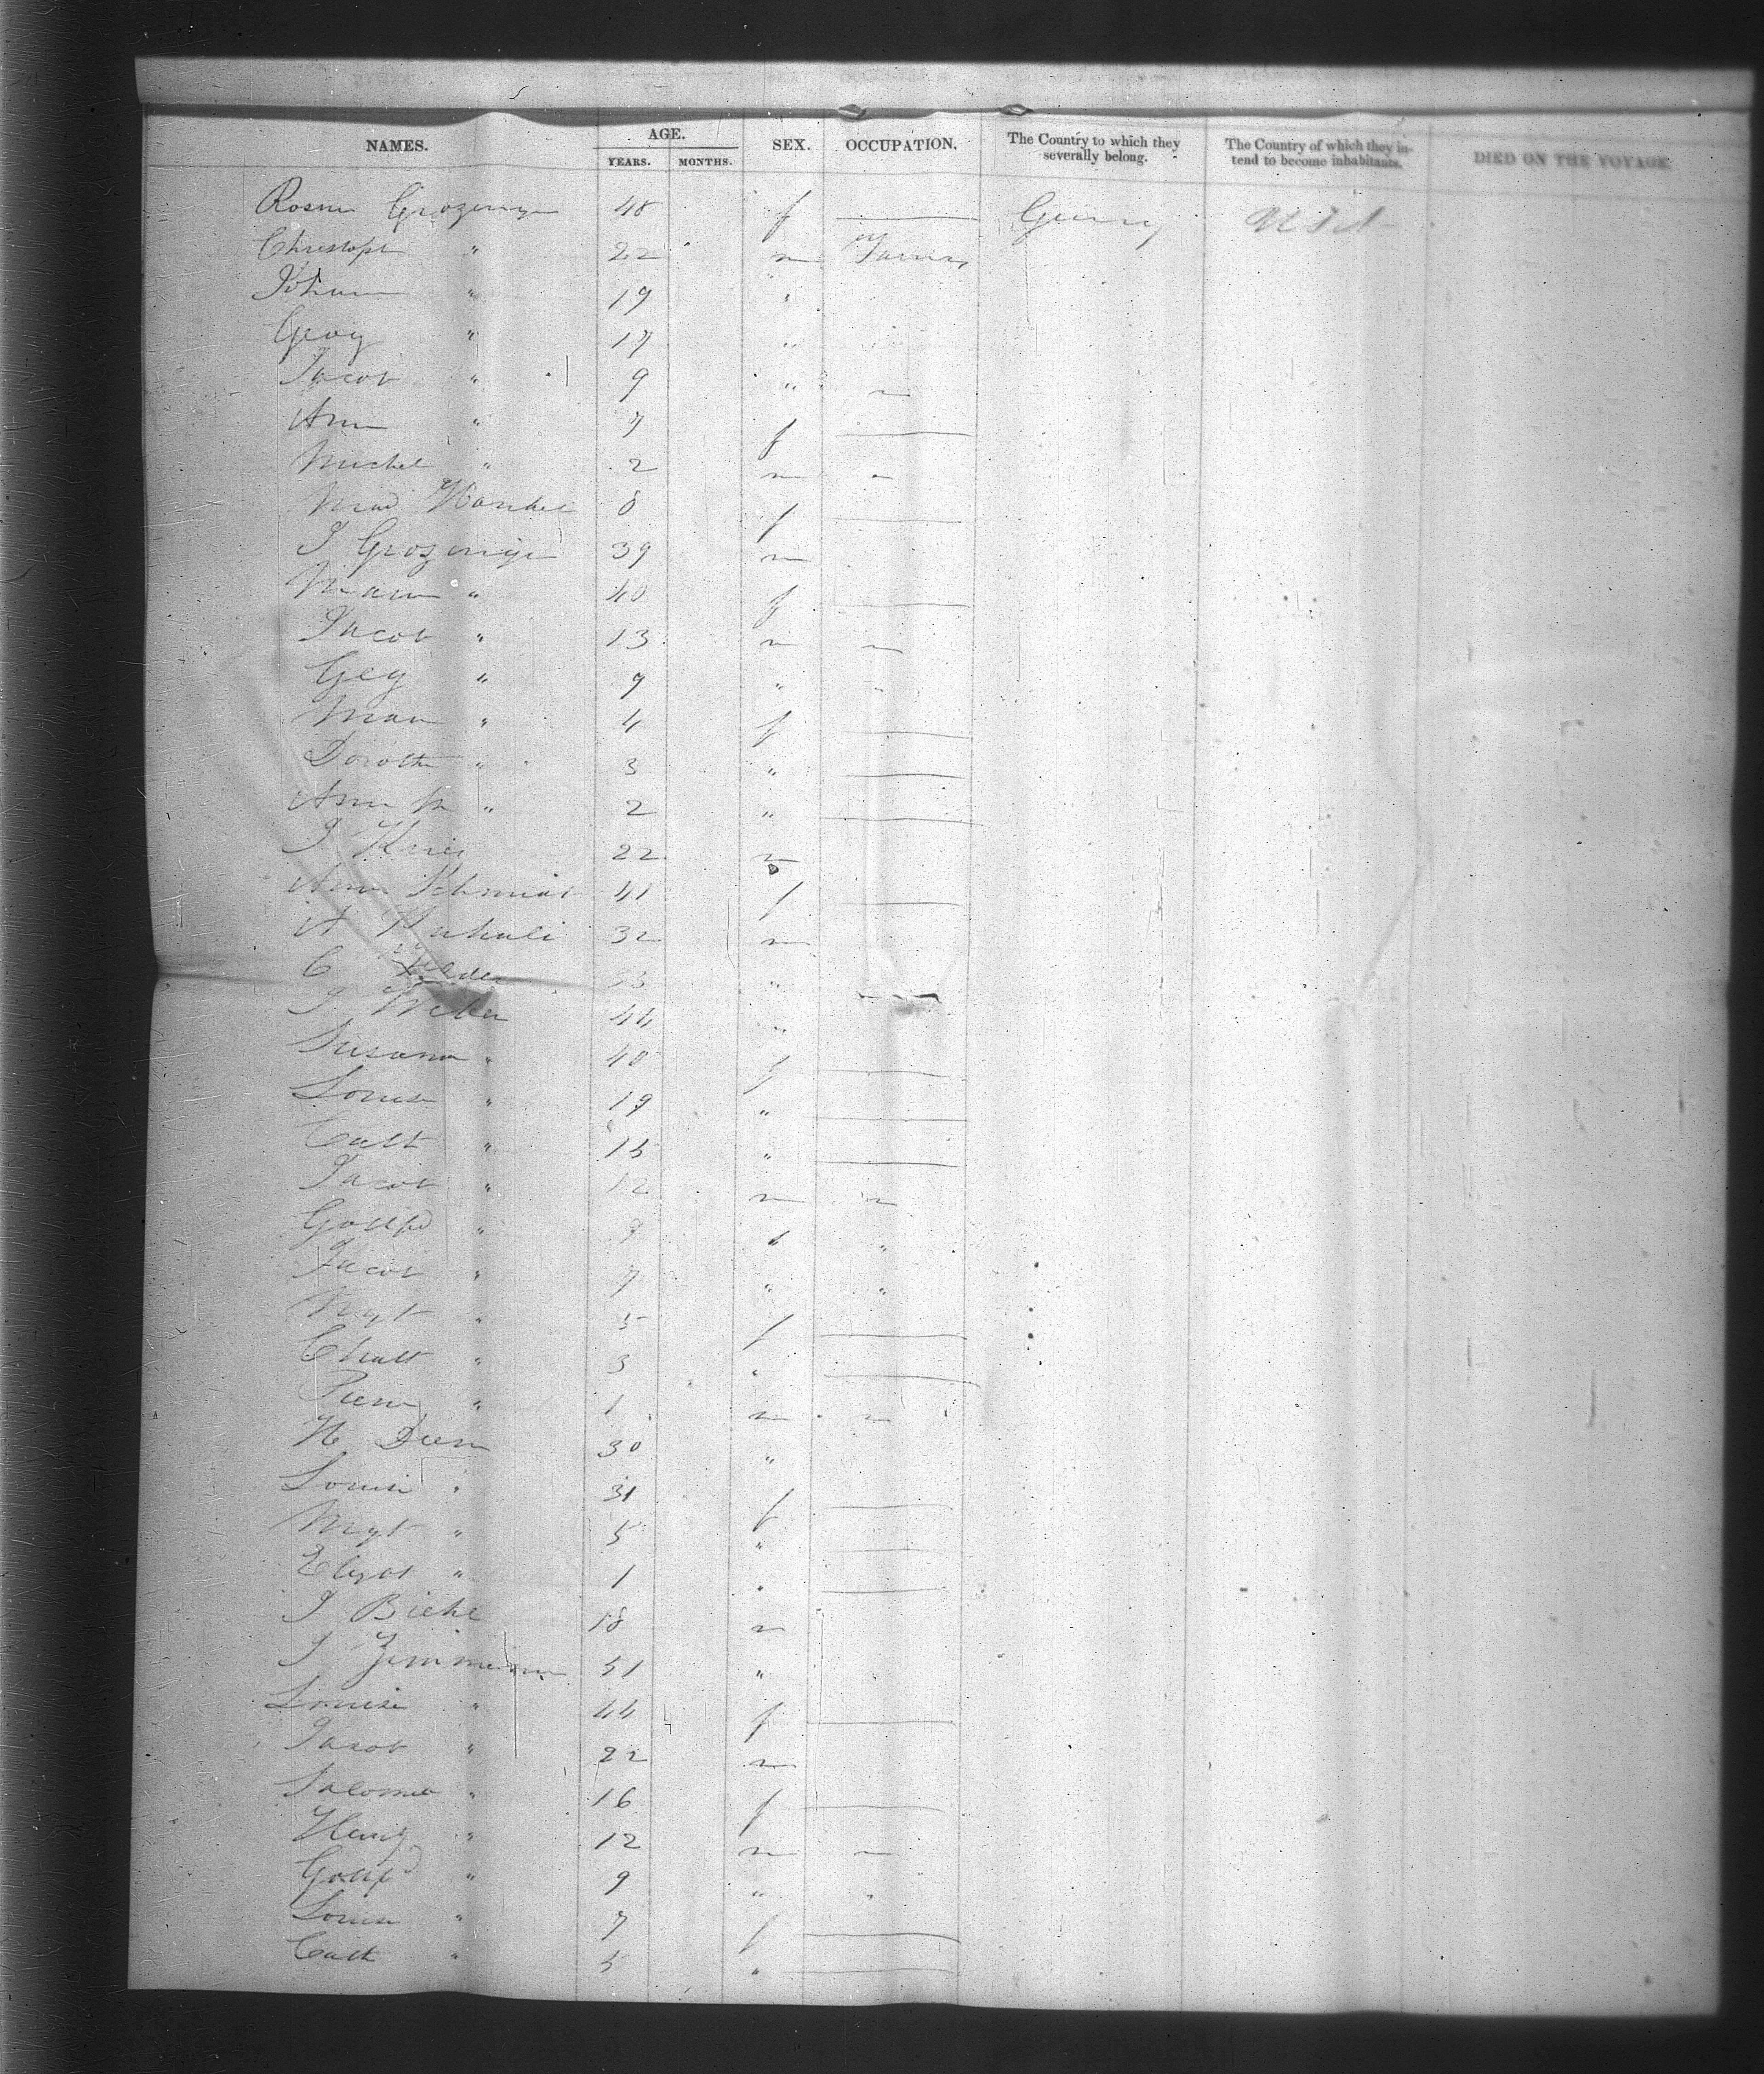 NAMES. AGE. SEX. OCCUPATION. The Country to which they severally belong. The Country of which they intend to become inhabitants. DIED ON THE VOYAGE.
YEARS. MONTHS.
Rosin Grozinger 48 f —— Germy U St
Christoph " 22 m Farmer
Johann " 19 "
Georg " 17 "
Jacob " 9 " —
Ann " 7 f ——
Michel " 2 m —
8 f ——
J Grozinger 39 m
Maria " 40 f ——
Jacob " 13 m —
Geg " 9 " "
Mari " 4 f ——
Doroth " 3 " ——
Ann M " 2 " ——
J 22 m
Ann Schmidt 41 f ——
A 32 m
C "
J Weber 44 "
Susana " 40 f ——
Louise " 19 " ——
Cath " 15 " ——
Jacob " 12 m —
Gottfd " 9 " "
Jacob " 7 " "
Mgt " 5 f ——
Chatt " 3 " ——
Pierre " 1 m —
H Diem 30 "
Louise " 31 f ——
Mgt " 5 " ——
Elizat " 1 " ——
J Biehl 18 m
J Zimmerman 51 "
Louise " 44 f ——
Jacob " 22 m
Salomea " 16 f ——
Henry " 12 m —
Gottfd " 9 " "
Louise " 7 f ——
Cath " 5 " ——